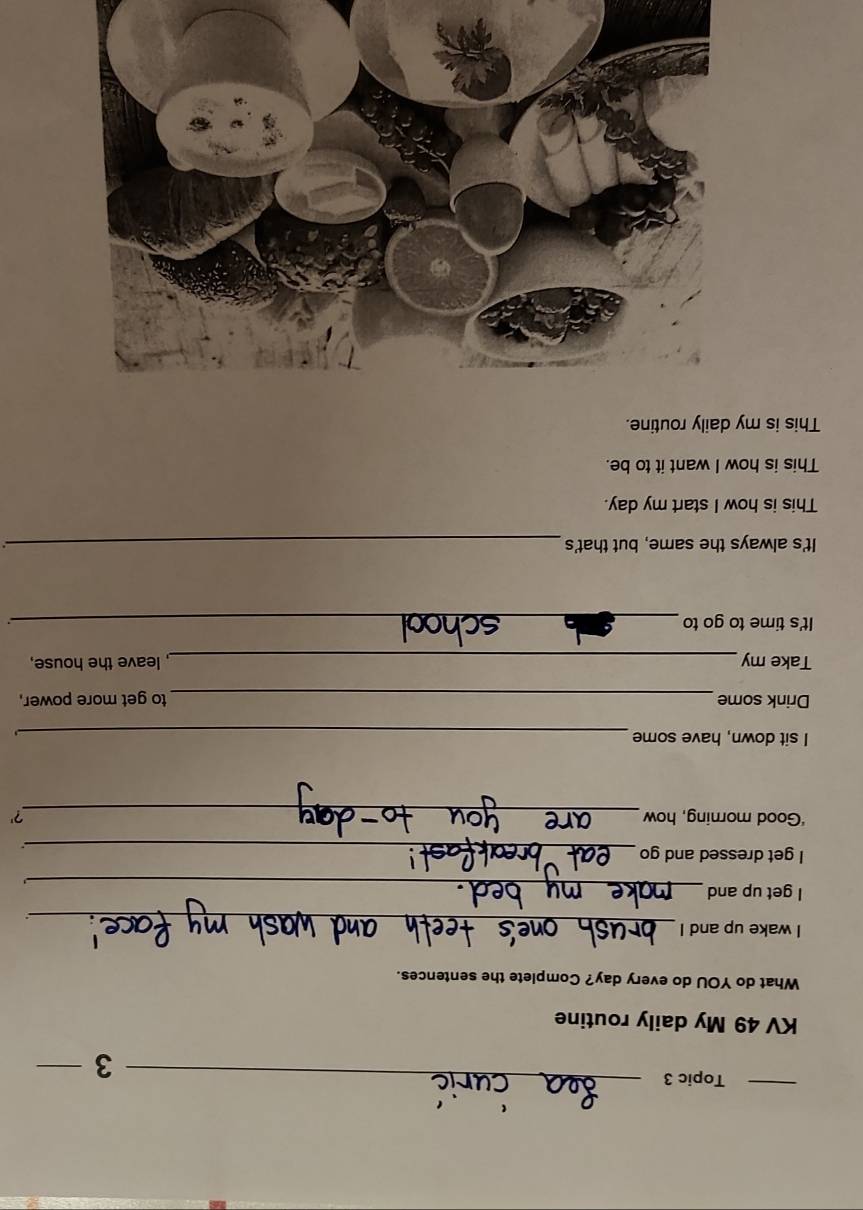 Topic 3 Bea Curić 3
KV 49 My daily routine
What do YOU do every day? Complete the sentences.
I wake up and I brush one's teeth and wash my face!.
I get up and make my bed.,
I get dressed and go eat breakfast!.
'Good morning, how are you to-day?'
I sit down, have some ,
Drink some to get more power,
Take my , leave the house,
It's time to go to school.
It's always the same, but that's .
This is how I start my day.
This is how I want it to be.
This is my daily routine.